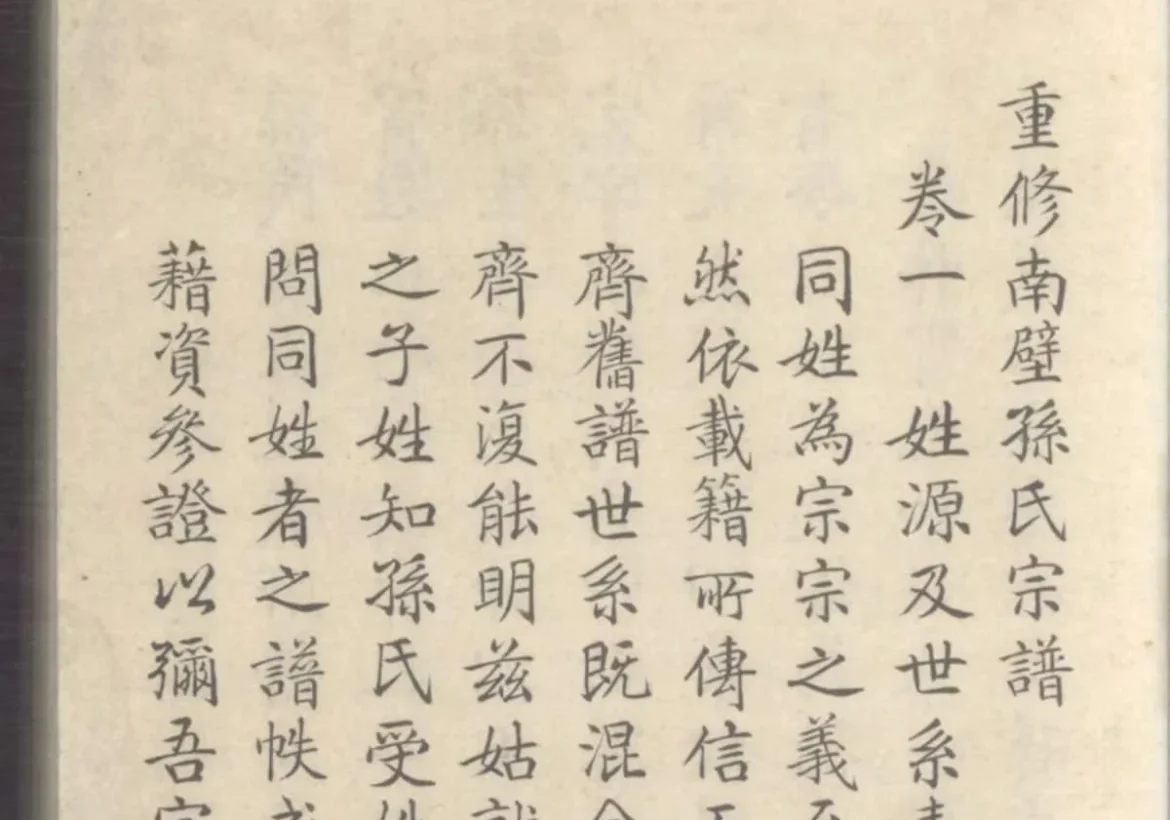 重修南壁孫氏宗譜
卷一 姓源及世系
同姓為宗宗之義
然依載籍所傳信
齊舊譜世系既混
齊不復能明茲姑
之子姓知孫氏受
問同姓者之譜帙
藉資參證以彌吾